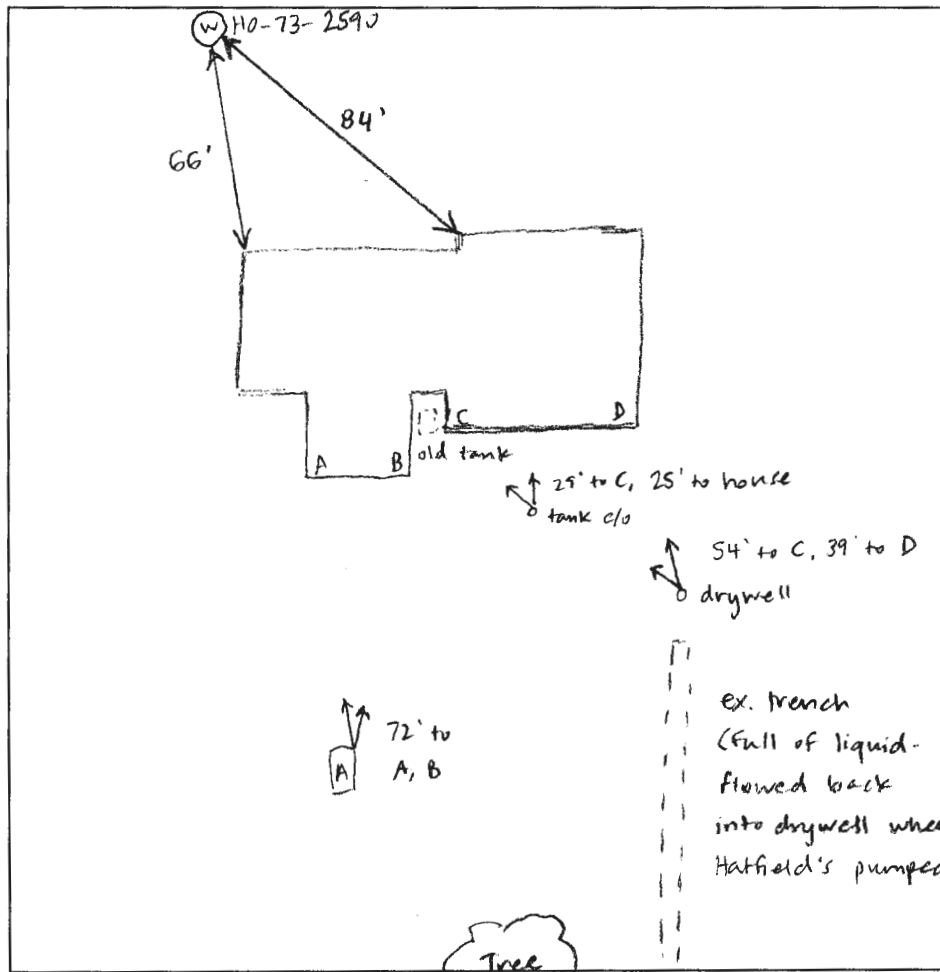 W HO-73-2590
84'
66'
C D
A B old tank
29' to C, 25' to house
tank c/o
54' to C, 39' to D
drywell
ex. trench
(full of liquid-
flowed back
into drywell
Hatfield's pumped
72' to
A A, B
Tree